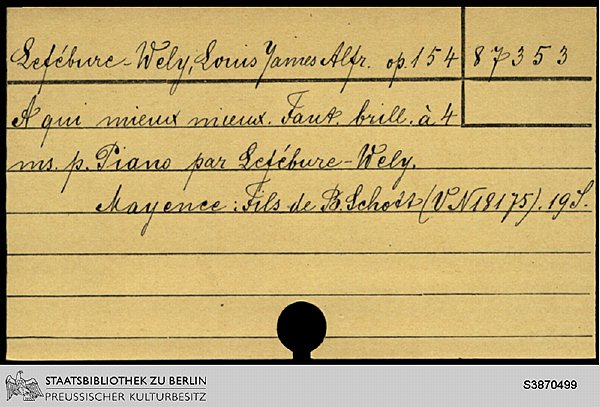 Lefébure-Wely, Louis James Alfr. op.154 87353
A qui mieux mieux. Fant. brill. à 4
ms. p. Piano par Lefébure-Wely.
Mayence: Fils de B. Schott (VN 18175). 19 S.
STAATSBIBLIOTHEK ZU BERLIN
PREUSSISCHER KULTURBESITZ
S3870499